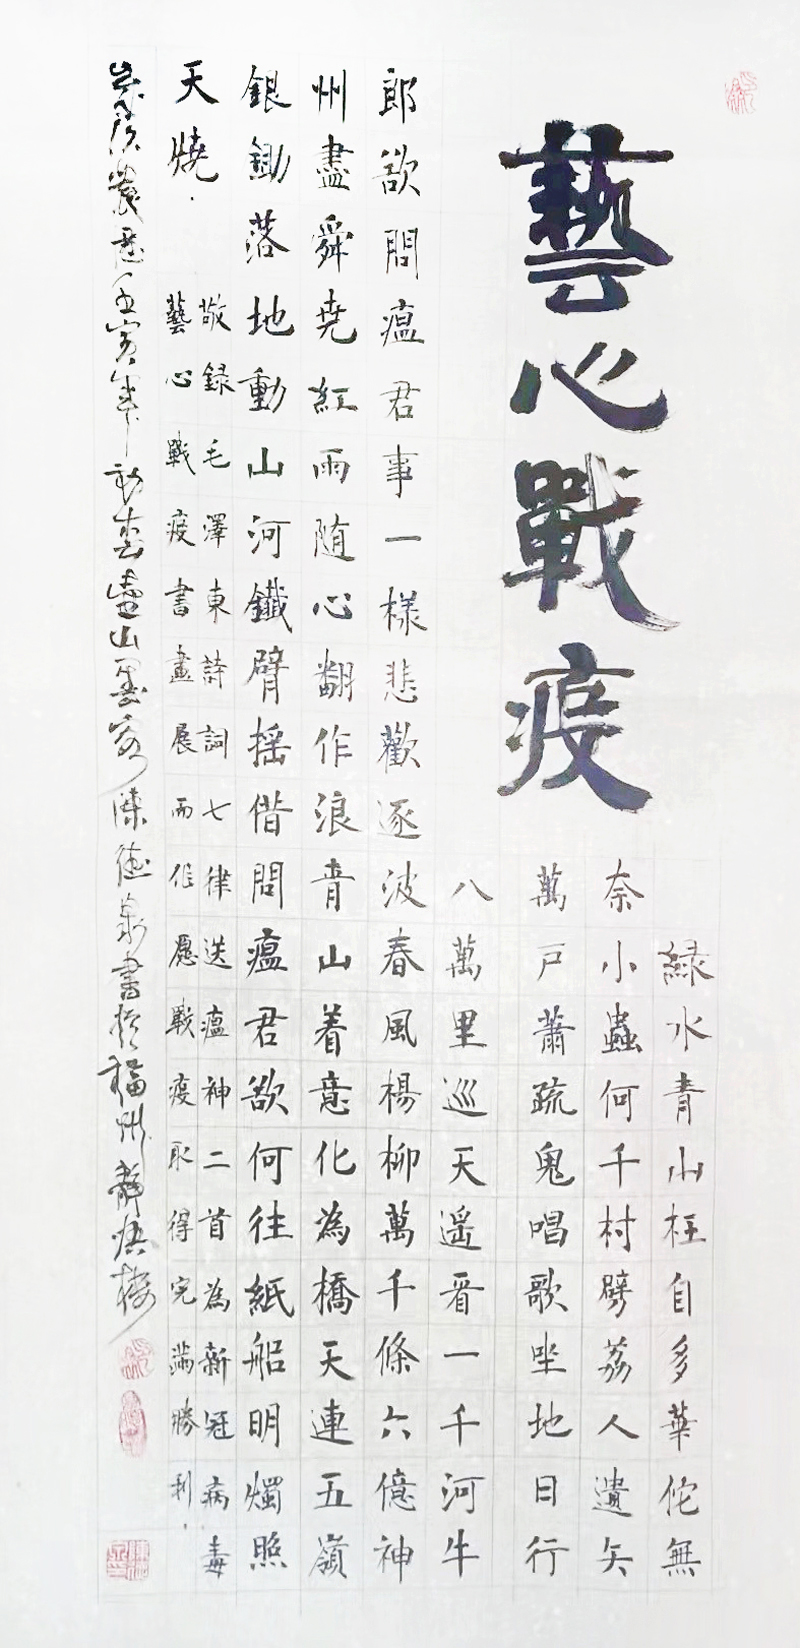 藝心戰疫
緑水青山枉自多華佗無
奈小蟲何千村劈荔人遺矢
萬戸蕭疏鬼唱歌坐地日行
八萬里巡天遥看一千河牛
郎欲問瘟君事一樣悲歡逐波春風楊柳萬千條六億神
州盡舜尭紅雨随心翻作浪青山着意化為橋天連五嶺
銀鋤落地動山河鐵臂揺借問瘟君欲何往紙船明燭照
天燒.
敬録毛澤東詩詞七律送瘟神二首為新冠病毒
藝心戰疫書畫展而作愿戰疫取得完满勝利.
歲次農歷壬寅年初春壺山墨客陳德泉書於福州靜悟楼